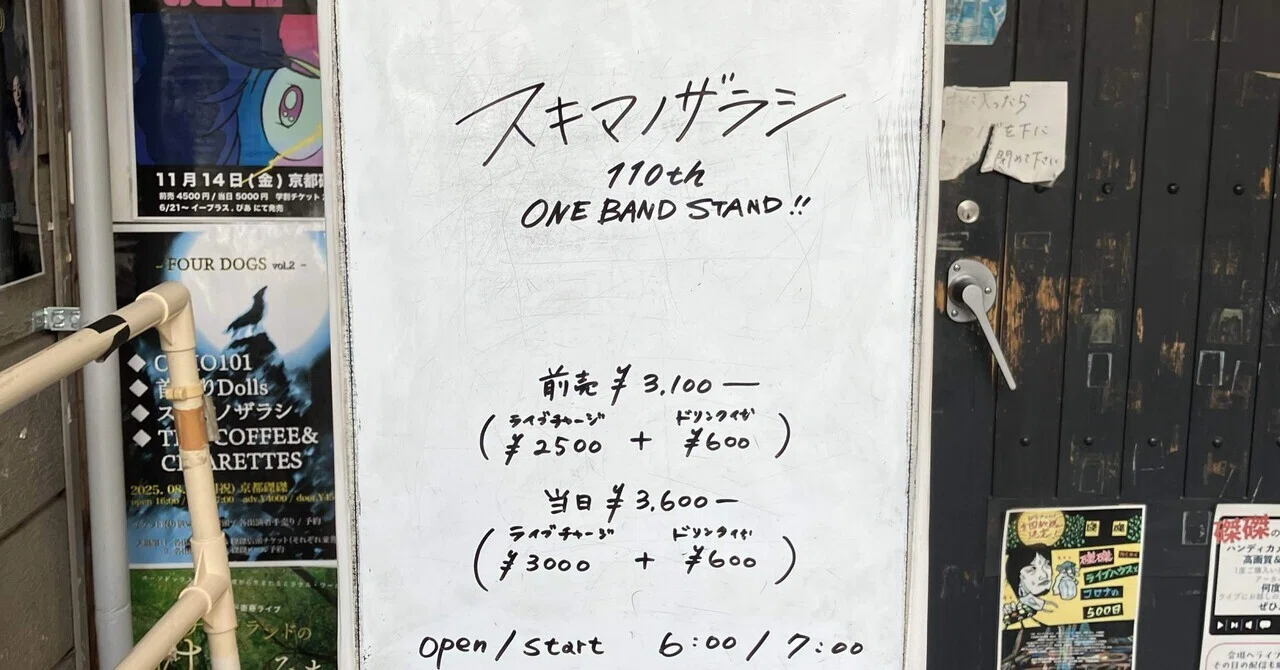 スキマノザラシ
110th
ONE BAND STAND!!
前売 ¥3,100ー
ライブチャージ ドリンクダイ
(¥2500 + ¥600)
当日 ¥3,600ー
ライブチャージ ドリンクダイ
(¥3000 + ¥600)
open/start 6:00/7:00
11月14日(金) 京都磔
前売4500円/当日5000円 学割チケット
6/21〜 イープラス、ぴあ にて発売
- FOUR DOGS vol.2 -
Dolls
ノザラシ
COFFEE&
CIGARETTES
2025.08. 祝) 京都磔磔
ランドの
に入ったら
を下に
閉めて下さい
磔磔
ライブハウスと
コロナの
500日
磔磔の
ハンディカメ
高画質&
何度
ぜひ
会場へライブ
その日の配信